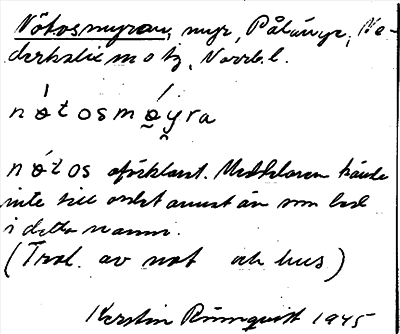 Nötosmyran, myr, Pålänge, Ne-
derkalix motz, Norrb. l.
nøtosmøyra
nøtos oförklarat. Meddelaren kände
inte till ordet annat än som led
i detta namn.
(Trol. av not och hus.)
Kerstin Rönnqvist 1945